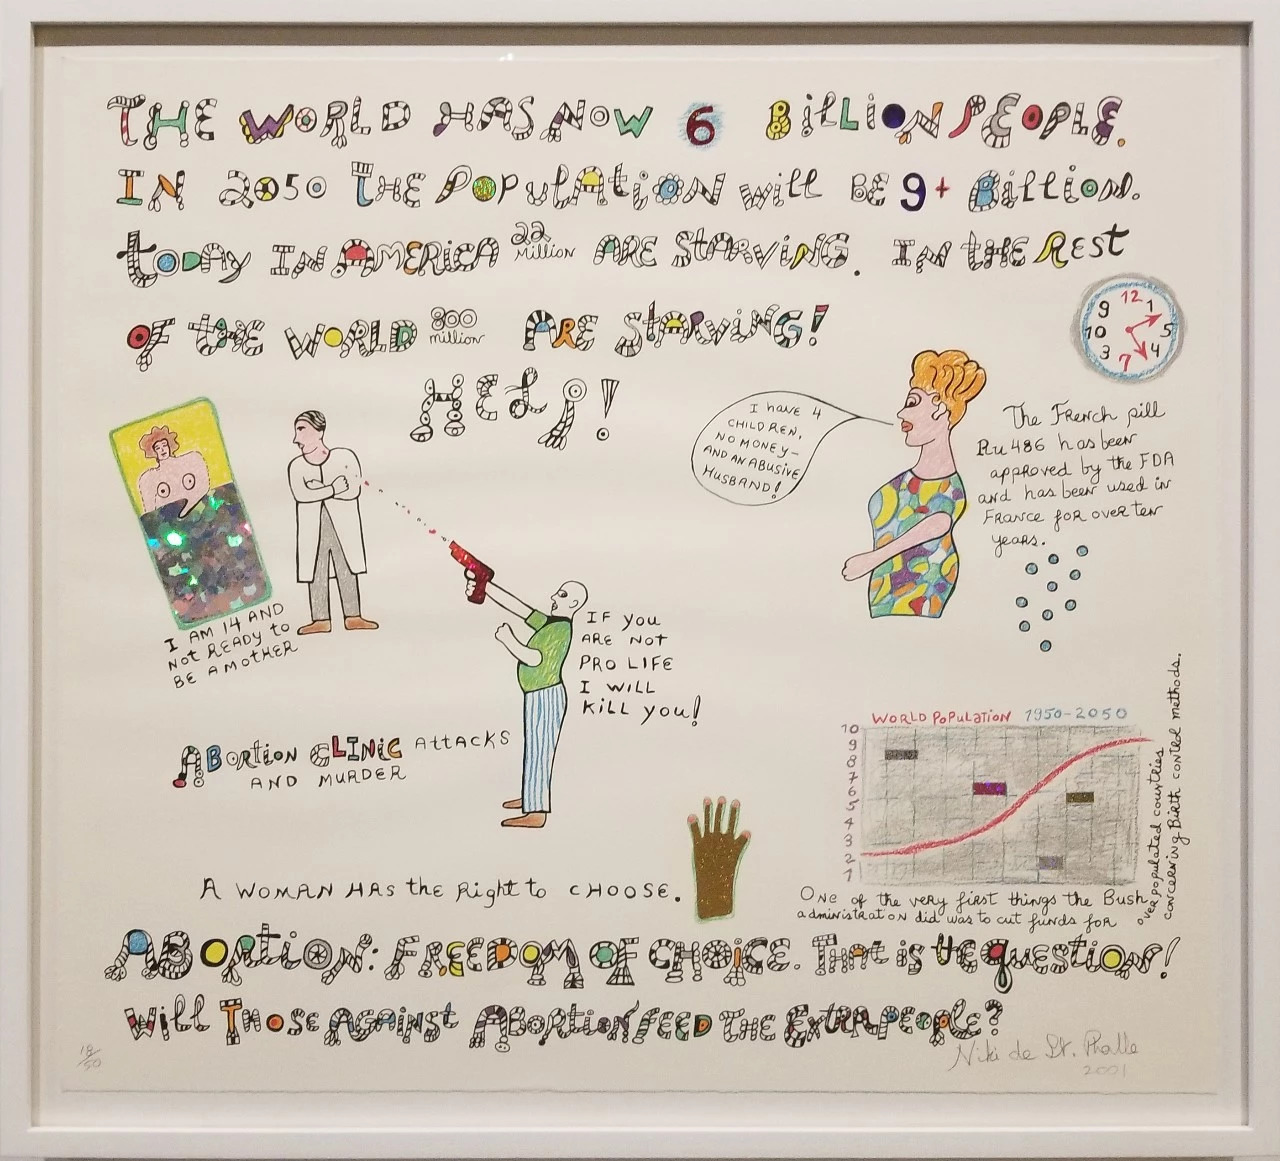 THE WORLD HAS NOW 6 BILLION PEOPLE.
IN 2050 THE POPULATION will BE 9+ Billion.
today IN AMERICA 22 million ARE STARVING. IN tHE REST
OF tHE WORLD 800 million ARE STARVING!
HELP!
12
1
5
4
7
3
10
9
I have 4
CHILDREN,
NO MONEY-
AND AN ABUSIVE
HUSBAND!
The French pill
Ru 486 has been
approved by the FDA
and has been used in
France for over ten
years.
I AM 14 AND
Not READY to
BE A MOtHER
IF you
ARE Not
PRO LIFE
I WiLL
KiLL you!
ABoRtion CLINiC AttACKS
AND MURDER
WORLD POPULATION 1950-2050
10
9
8
7
6
5
4
3
2
1
One of the very first things the Bush
administration did was to cut funds for
overpopulated countries
concerning Birth control methods.
A WOMAN HAS the Right to CHOOSE.
ABORtiON: FREEDOM OF CHOiCE. That is tHE QUESTION!
Will THOSE AGAINSt ABORTION FEED THE EXTRA PEOPLE?
18/50
Niki de St. Phalle
2001